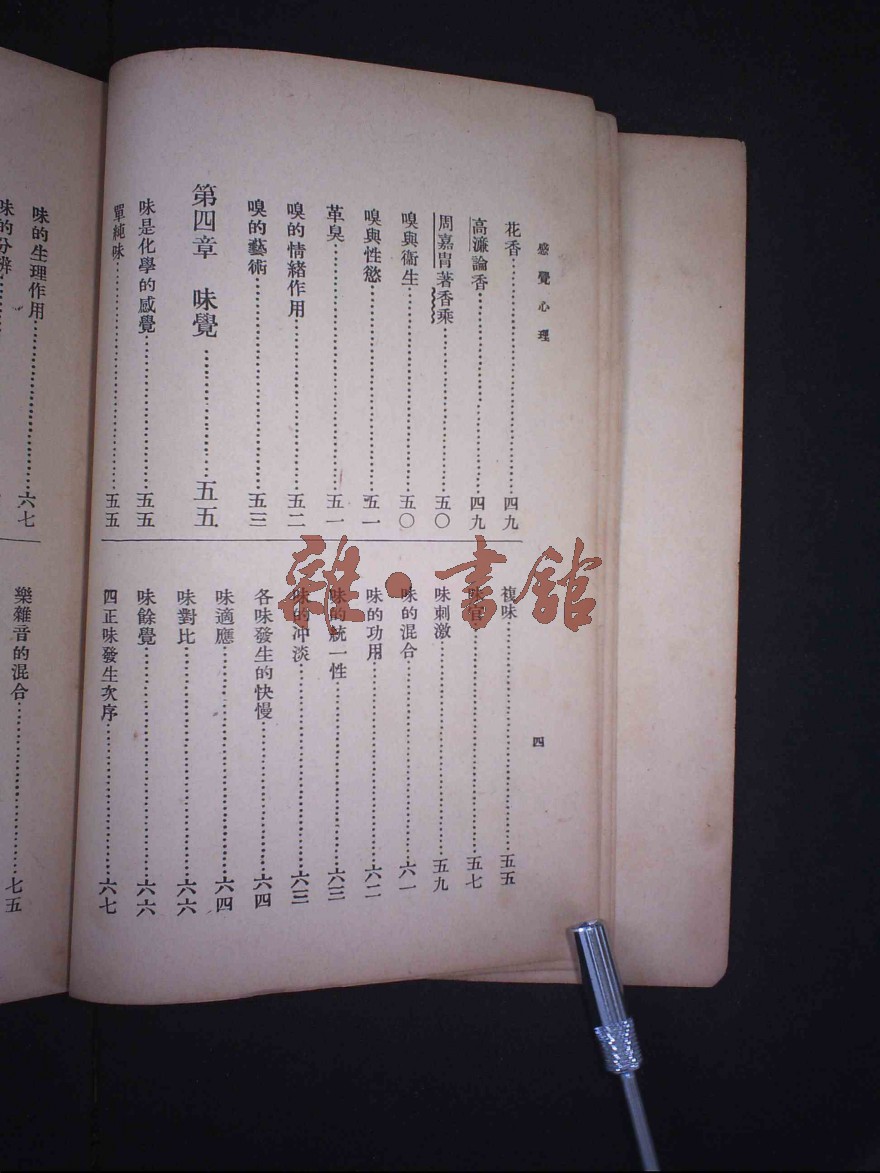 感覺心理
四
花香……四九
高濂論香……四九
周嘉冑著香乘……五〇
嗅與衞生……五〇
嗅與性慾……五一
革臭……五一
嗅的情緒作用……五二
嗅的藝術……五三
第四章 味覺……五五
味是化學的感覺……五五
單純味……五五
複味……五五
味官……五七
味刺激……五九
味的混合……六一
味的功用……六二
味的統一性……六三
味的沖淡……六三
各味發生的快慢……六四
味適應……六四
味對比……六六
味餘覺……六六
四正味發生次序……六七
味的生理作用……六七
味的分辨
樂雜音的混合……七五
雜·書館